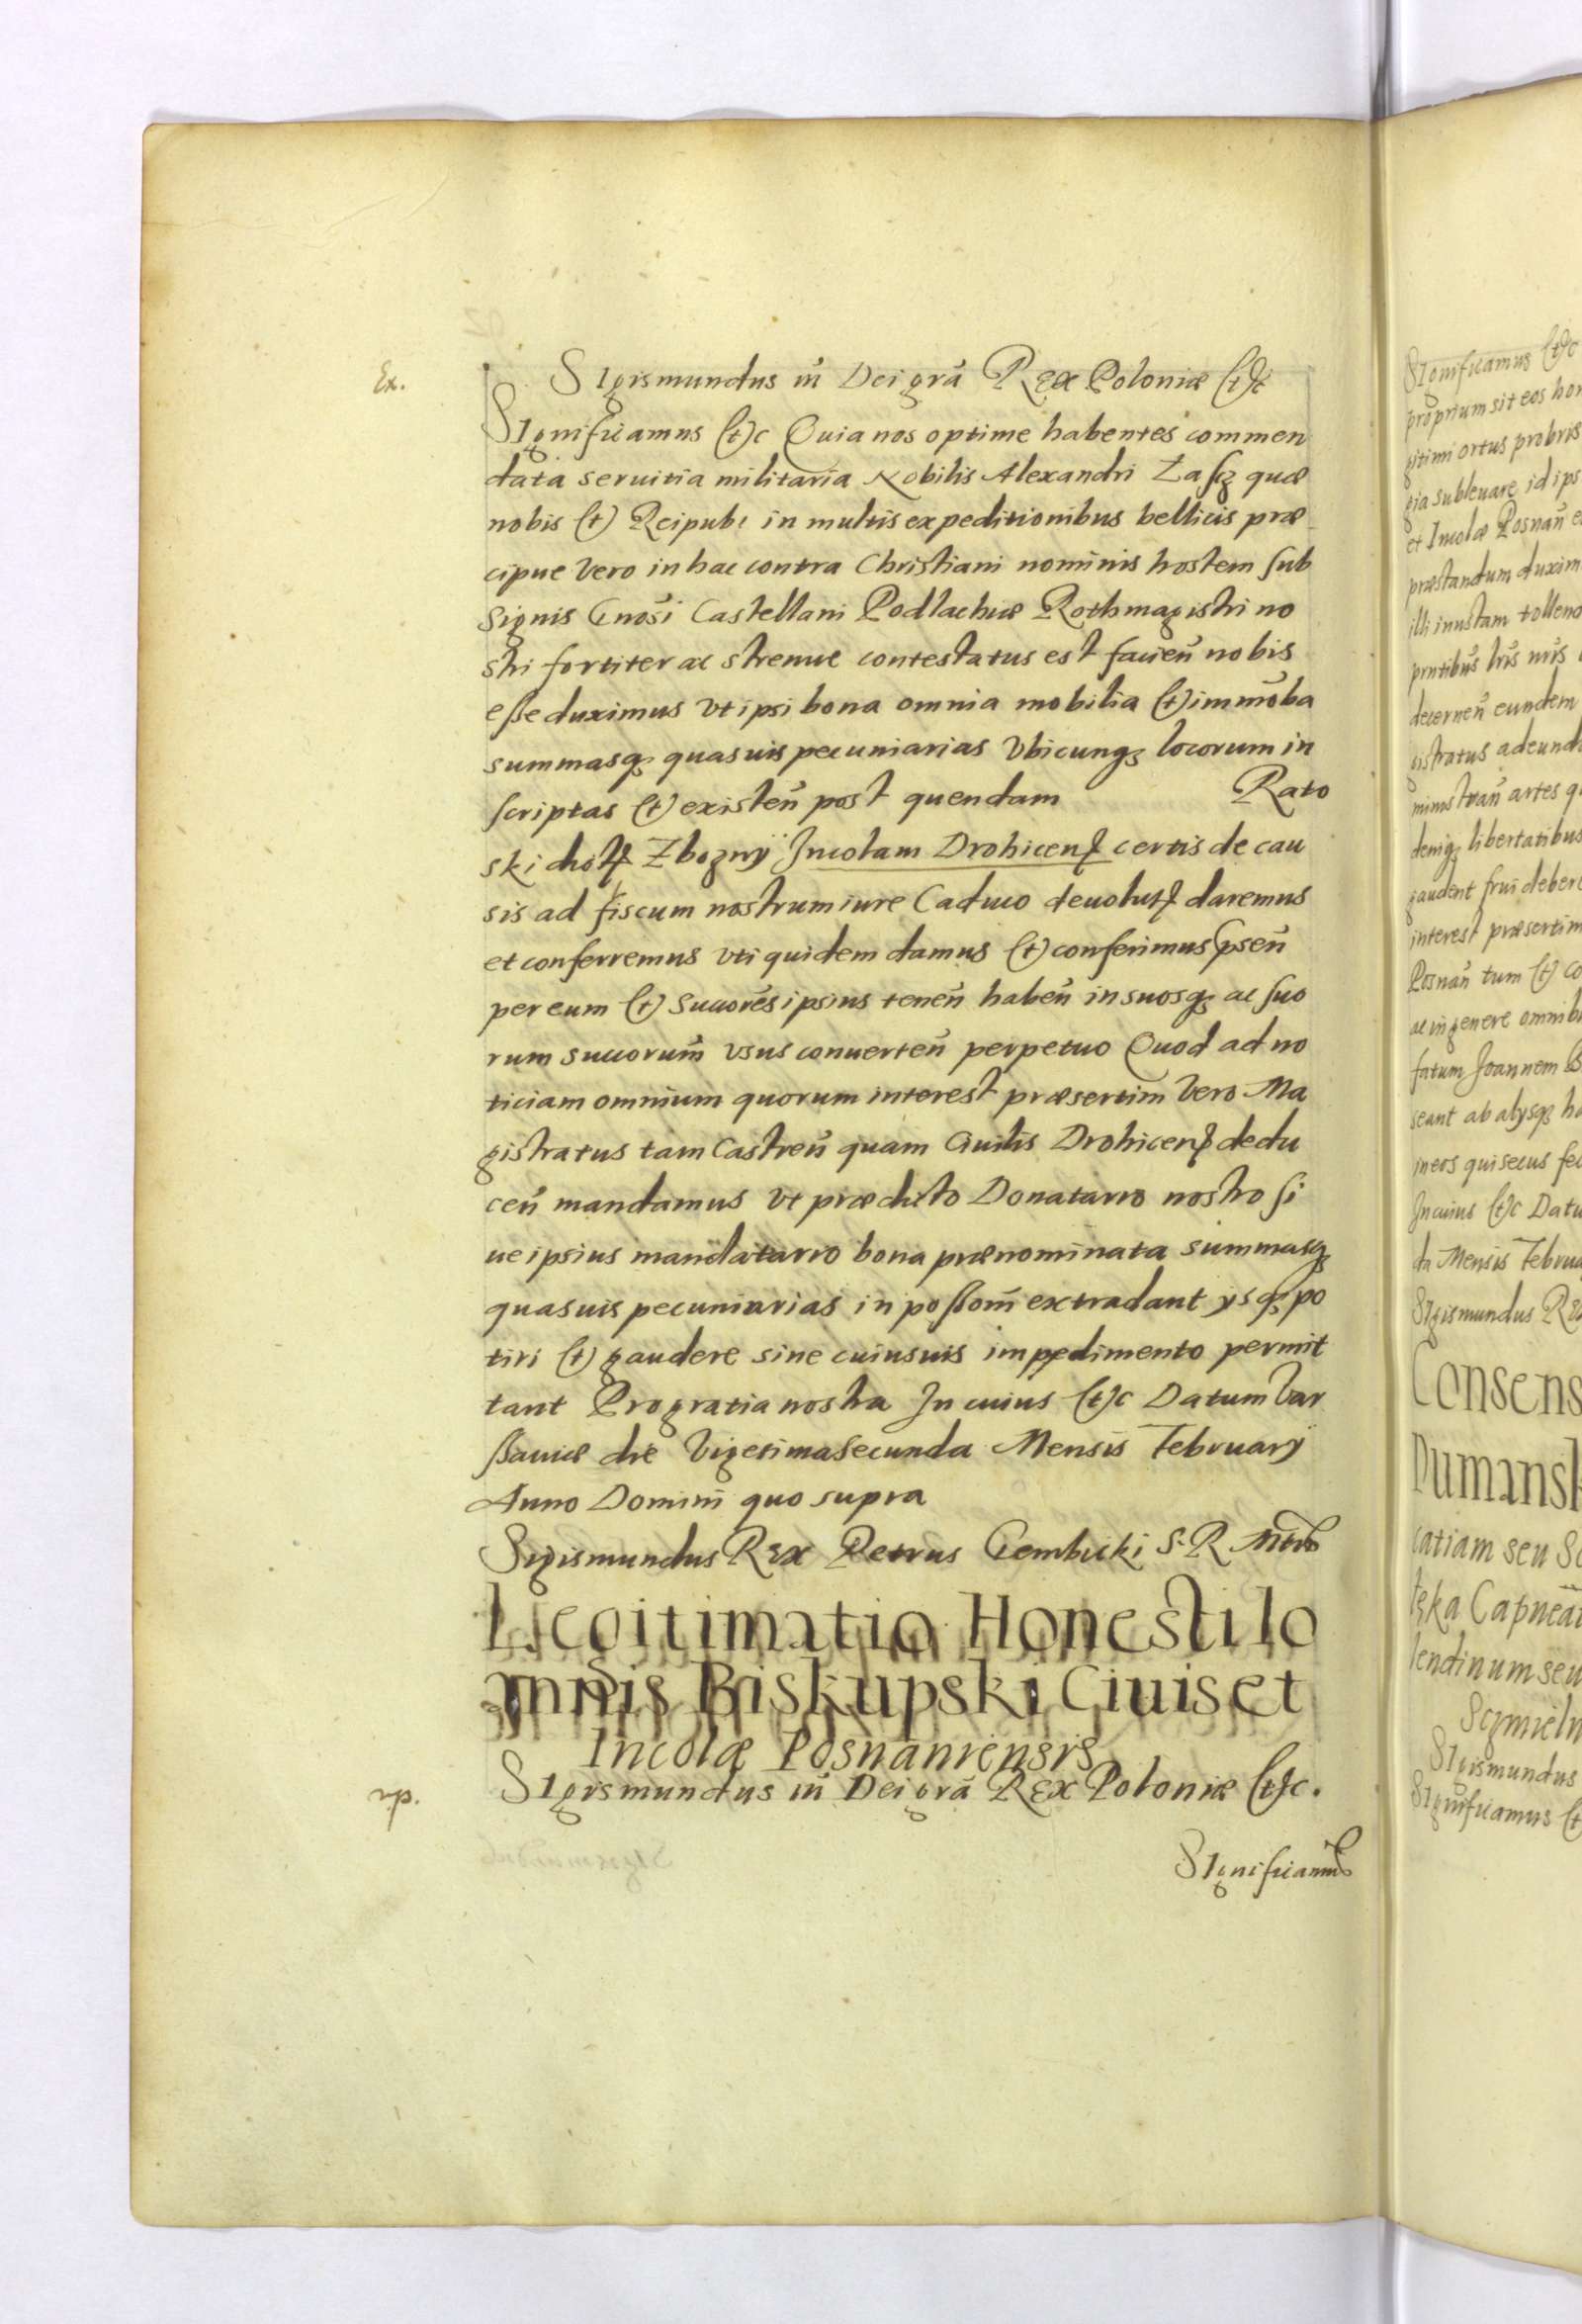 Ex.
SIgismundus iii Dei grã REx Poloniæ (t)c
SIgnificamus (t)c Quia nos optime habentes commen
data seruitia militaria Nobilis Alexandri Zasz quæ
nobis (t) Reipub: in multis expeditionibus bellicis præ
cipue vero in hac contra Christiani nominis hostem sub
signis Gnosi Castellani Podlachiæ Rothmagistri no
stri fortiter ac strenue contestatus est facieñ nobis
eße duximus vt ipsi bona omnia mobilia (t) immoba
summasq3 quasuis pecuniarias vbicunq3 locorum in
scriptas (t) existeñ post quendam Rato
ski dictũ Zbozny Incolam Drohicenſ certis de cau
sis ad fiscum nostrum iure Caduco deuolutſ daremus
et conferremus vti quidem damus (t) conferimus Pseñ
per eum (t) Succores ipsius teneñ habeñ in suosq3 ac suo
rum succorum vsus conuerteñ perpetuo Quod ad no
ticiam omnium quorum interest præsertim vero Ma
gistratus tam Castreñ quam Ciuilis Drohicenſ dedu
ceñ mandamus vt prædicto Donatario nostro si
ue ipsius mandatario bona prænominata summasq3
quasuis pecuniarias in poßom̃ extradant ysq3 po
tiri (t) gaudere sine cuiusuis impedimento permit
tant Pro gratia nostra In cuius (t)c Datum Var
ßauiæ die Vigesima Secunda Mensis February
Anno Domini quo supra
Sigismundus REx Petrus Gembicki S. R. Mtis
Legitimatio Honesti Io
annis Biskupski Ciuis et
Incolæ Posnaniensis
np.
SIgismundus iii Dei grã REx Poloniæ (t)c.
SIgnificamus
SIgnificamus (t)c
proprium sit eos hon
gitimi ortus probris
gia subleuare id ips
et Incolæ Posnañ e
præstandum duxim
illi inustam tollend
pntibus lris nris
decerneñ eundem
gistratus adeund
ministrañ artes q
deniq3 libertatibus
gaudent frui debere
interest præsertim
Posnañ tum (t) co
ac in genere omnib
fatum Joannem B
seant ab alysq3 ha
in eos qui secus fec
In cuius (t)c Datu
da Mensis Februa
SIgismundus RE
Consens
Dumansk
catiam seu Sc
teka Capnea
lendinum seu
Sczmieln
SIgismundus
SIgnificamus (t